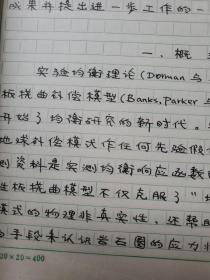 成果并提出进一步工作的一
一、概
实验均衡理论(Dorman与
板挠曲补偿模型(Banks, Parker与
开始了均衡研究的新时代。
地球补偿模式作任何先验假
测资料是实测均衡响应函数
性板挠曲模型不仅克服了"
模式的物理非真实性，还帮
手段来认识岩石圈的应力
20×20=400